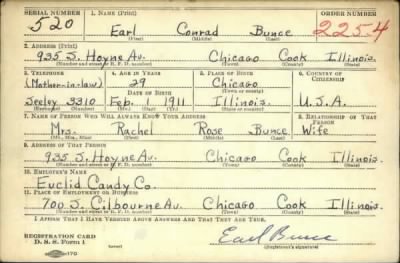 SERIAL NUMBER 1. NAME (Print) ORDER NUMBER
520 Earl Conrad Bunce 2254
(First) (Middle) (Last)
2. ADDRESS (Print)
935 S. Hoyne Av. Chicago Cook Illinois.
(Number and street or R. F. D. number) (Town) (County) (State)
3. TELEPHONE 4. AGE IN YEARS 5. PLACE OF BIRTH 6. COUNTRY OF CITIZENSHIP
(Mother-in-law) 29 Chicago
DATE OF BIRTH (Town or county)
Seeley 3310 Feb. 1 1911 Illinois. U.S.A.
(Exchange) (Number) (Mo.) (Day) (Yr.) (State or country)
7. NAME OF PERSON WHO WILL ALWAYS KNOW YOUR ADDRESS 8. RELATIONSHIP OF THAT PERSON
Mrs. Rachel Rose Bunce Wife
(Mr., Mrs., Miss) (First) (Middle) (Last)
9. ADDRESS OF THAT PERSON
935 S. Hoyne Av. Chicago Cook Illinois.
(Number and street or R. F. D. number) (Town) (County) (State)
10. EMPLOYER'S NAME
Euclid Candy Co.
11. PLACE OF EMPLOYMENT OR BUSINESS
700 S. Cilbourne Av. Chicago Cook Illinois
(Number and street or R. F. D. number) (Town) (County) (State)
I AFFIRM THAT I HAVE VERIFIED ABOVE ANSWERS AND THAT THEY ARE TRUE.
REGISTRATION CARD
D. S. S. Form 1 (over) Earl Bunce
(Registrant's signature)